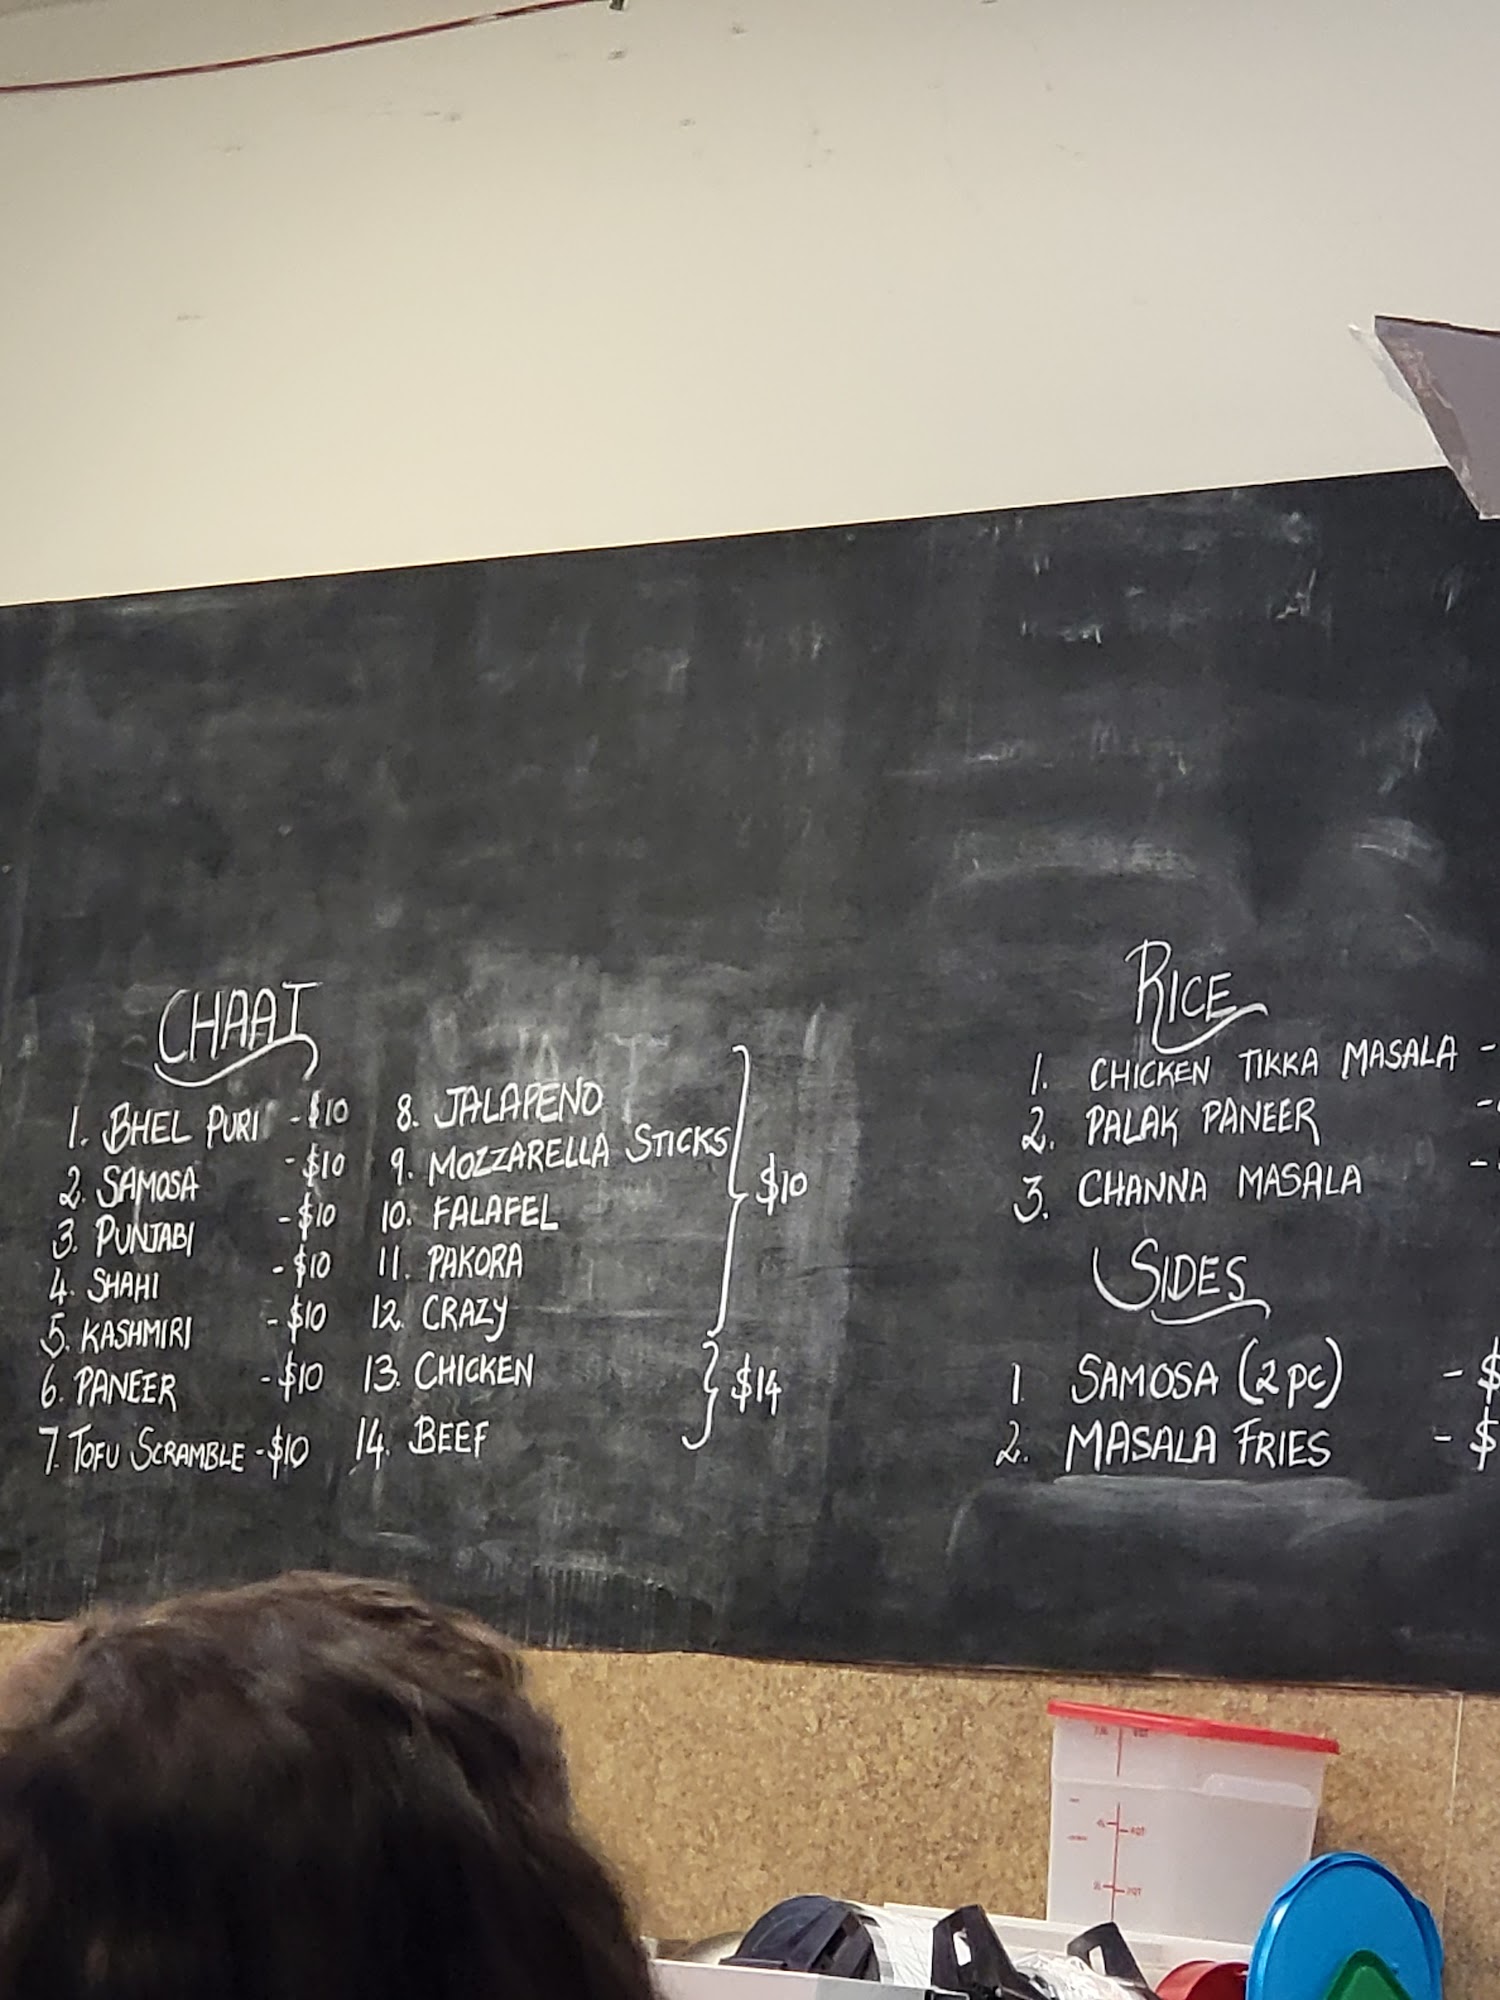 CHAAT
1. BHEL PURI - $10
2. SAMOSA - $10
3. PUNJABI - $10
4. SHAHI - $10
5. KASHMIRI - $10
6. PANEER - $10
7. TOFU SCRAMBLE - $10
8. JALAPENO
9. MOZZARELLA STICKS
10. FALAFEL
11. PAKORA
12. CRAZY
$10
13. CHICKEN
14. BEEF
$14
RICE
1. CHICKEN TIKKA MASALA -
2. PALAK PANEER -
3. CHANNA MASALA -
SIDES
1. SAMOSA (2 PC) - $
2. MASALA FRIES - $